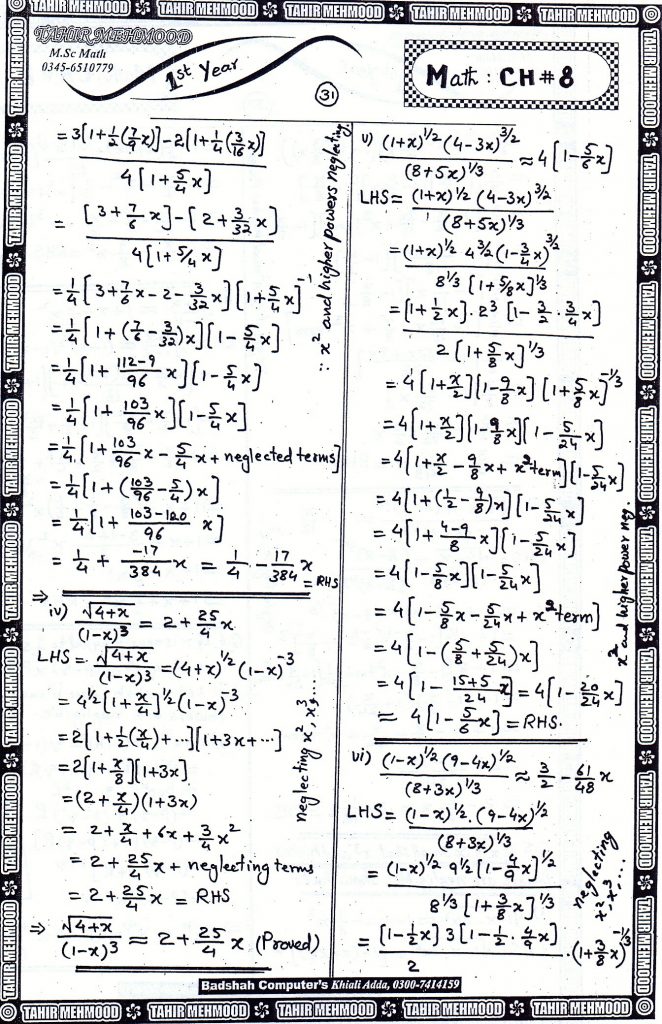 TAHIR MEHMOOD TAHIR MEHMOOD TAHIR MEHMOOD TAHIR MEHMOOD TAHIR MEHMOOD
TAHIR MEHMOOD
M.Sc Math
0345-6510779
1st Year
31
Math : CH # 8
= 3[1+½(7/9 x)] - 2[1+¼(3/16 x)] / 4[1+5/4 x]
= [3+7/6 x] - [2+3/32 x] / 4[1+5/4 x]
= ¼[3+7/6 x - 2 - 3/32 x][1+5/4 x]⁻¹
= ¼[1+(7/6 - 3/32)x][1-5/4 x]
= ¼[1+ 112-9/96 x][1-5/4 x]
= ¼[1+ 103/96 x][1-5/4 x]
= ¼[1+ 103/96 x - 5/4 x + neglected terms]
= ¼[1+(103/96 - 5/4)x]
= ¼[1+ 103-120/96 x]
= ¼ + -17/384 x = ¼ - 17/384 x = RHS
∵ x² and higher powers neglecting
⇒ iv) √(4+x)/(1-x)³ = 2 + 25/4 x
LHS = √(4+x)/(1-x)³ = (4+x)^½ (1-x)⁻³
= 4^½ [1+x/4]^½ (1-x)⁻³
= 2[1+½(x/4)+...][1+3x+...]
= 2[1+x/8][1+3x]
= (2+x/4)(1+3x)
= 2+x/4+6x+¾x²
= 2+25/4 x + neglecting terms
= 2+25/4 x = RHS
neglecting x², x³, ...
⇒ √(4+x)/(1-x)³ ≈ 2+25/4 x (Proved)
v) (1+x)^1/2 (4-3x)^3/2 / (8+5x)^1/3 ≈ 4[1-5/6 x]
LHS = (1+x)^1/2 (4-3x)^3/2 / (8+5x)^1/3
= (1+x)^1/2 4^3/2 (1-¾x)^3/2 / 8^1/3 [1+5/8 x]^1/3
= [1+½x]·2³[1-3/2·3/4 x] / 2[1+5/8 x]^1/3
= 4[1+x/2][1-9/8 x][1+5/8 x]^-1/3
= 4[1+x/2][1-9/8 x][1-5/24 x]
= 4[1+x/2-9/8 x+x² term][1-5/24 x]
= 4[1+(½-9/8)x][1-5/24 x]
= 4[1+ 4-9/8 x][1-5/24 x]
= 4[1-5/8 x][1-5/24 x]
= 4[1-5/8 x-5/24 x+x² term]
= 4[1-(5/8+5/24)x]
= 4[1- 15+5/24 x] = 4[1-20/24 x]
≈ 4[1-5/6 x] = RHS.
x² and higher power neg.
vi) (1-x)^1/2 (9-4x)^1/2 / (8+3x)^1/3 ≈ 3/2 - 61/48 x
LHS = (1-x)^1/2 . (9-4x)^1/2 / (8+3x)^1/3
= (1-x)^1/2 9^1/2 [1-4/9 x]^1/2 / 8^1/3 [1+3/8 x]^1/3
= [1-½x] 3[1-½·4/9 x] / 2 ·(1+3/8 x)^-1/3
neglecting x², x³, ...
Badshah Computer's Khiali Adda, 0300-7414159
TAHIR MEHMOOD TAHIR MEHMOOD TAHIR MEHMOOD TAHIR MEHMOOD TAHIR MEHMOOD